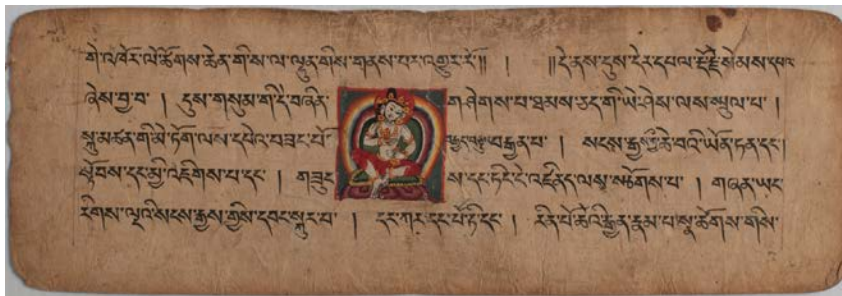 གེ་འཁོར་ལེ་ཚོགས་ཆེན་གིས་ལ་ལྷུན་གིས་གནས་པར་འགྱུར་རོ།། ། །།དེ་ནས་དུས་དེར་དཔལ་རྡོ་རྗེ་སེམས་དཔའ
ཞེས་བྱ་བ་ ། དུས་གསུམ་གི་དེ་བཞིན་ གཤེགས་པ་ཐམས་ཅད་གི་ཡེ་ཤེས་ལས་སྤྲུལ་པ་ །
སྐུ་མཚན་གི་མེ་ཏོག་ལས་དཔེའ་བཟང་པོ་ བརྒྱན་པ་ ། སངས་རྒྱ་ཀྱི་ཆེ་བའི་ཡོན་ཏན་དང་།
སྟོབས་དང་མྱི་འཇིགས་པ་དང་ ། གཟུང ས་དང་ཏིང་ངེ་འཛིན་ད་ལསྩ་སཙོགས་པ་ ། གཞན་ཡང
རིགས་ལྔའི་སངས་རྒྱས་གྱིས་དབང་སྐུར་པ་ ། དར་ཀར་དང་པོ་ཏི་དང་ ། རིན་པོ་ཆེའི་རྒྱན་རྣམ་པ་སྣ་ཚོགས་གསི་